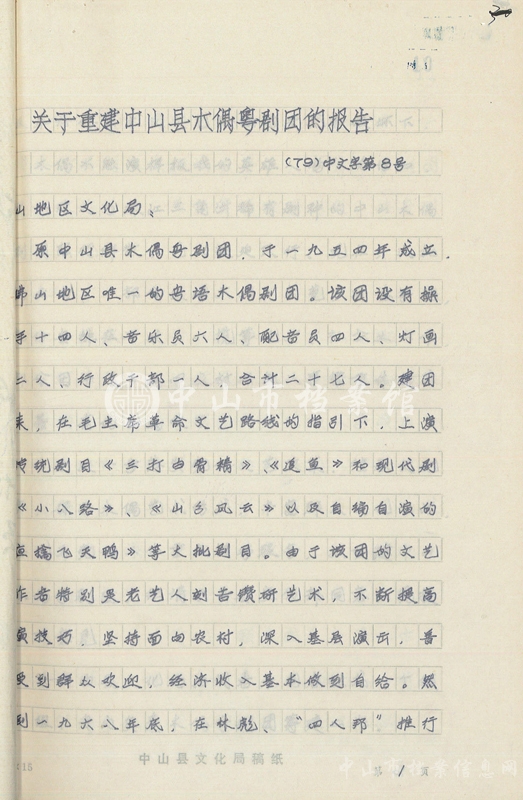 关于重建中山县木偶粤剧团的报告
(79)中文字第8号
山地区文化局：
原中山县木偶粤剧团，于一九五四年成立，
山地区唯一的粤语木偶剧团。该团设有操
手十四人、音乐员六人、配音员四人、灯画
二人、行政干部一人，合计二十七人。建团
来，在毛主席革命文艺路线的指引下，上演
传统剧目《三打白骨精》、《追鱼》和现代剧
《小八路》、《山乡风云》以及自编自演的
擒飞天鸭》等大批剧目。由于该团的文艺
作者特别是老艺人刻苦钻研艺术，不断提高
演技巧，坚持面向农村，深入基层演出，普
受到群众欢迎，经济收入基本做到自给。然
到一九六八年底，在林彪、"四人邦"推行
中山县文化局稿纸
第1页
中山市档案馆
中山市档案信息网